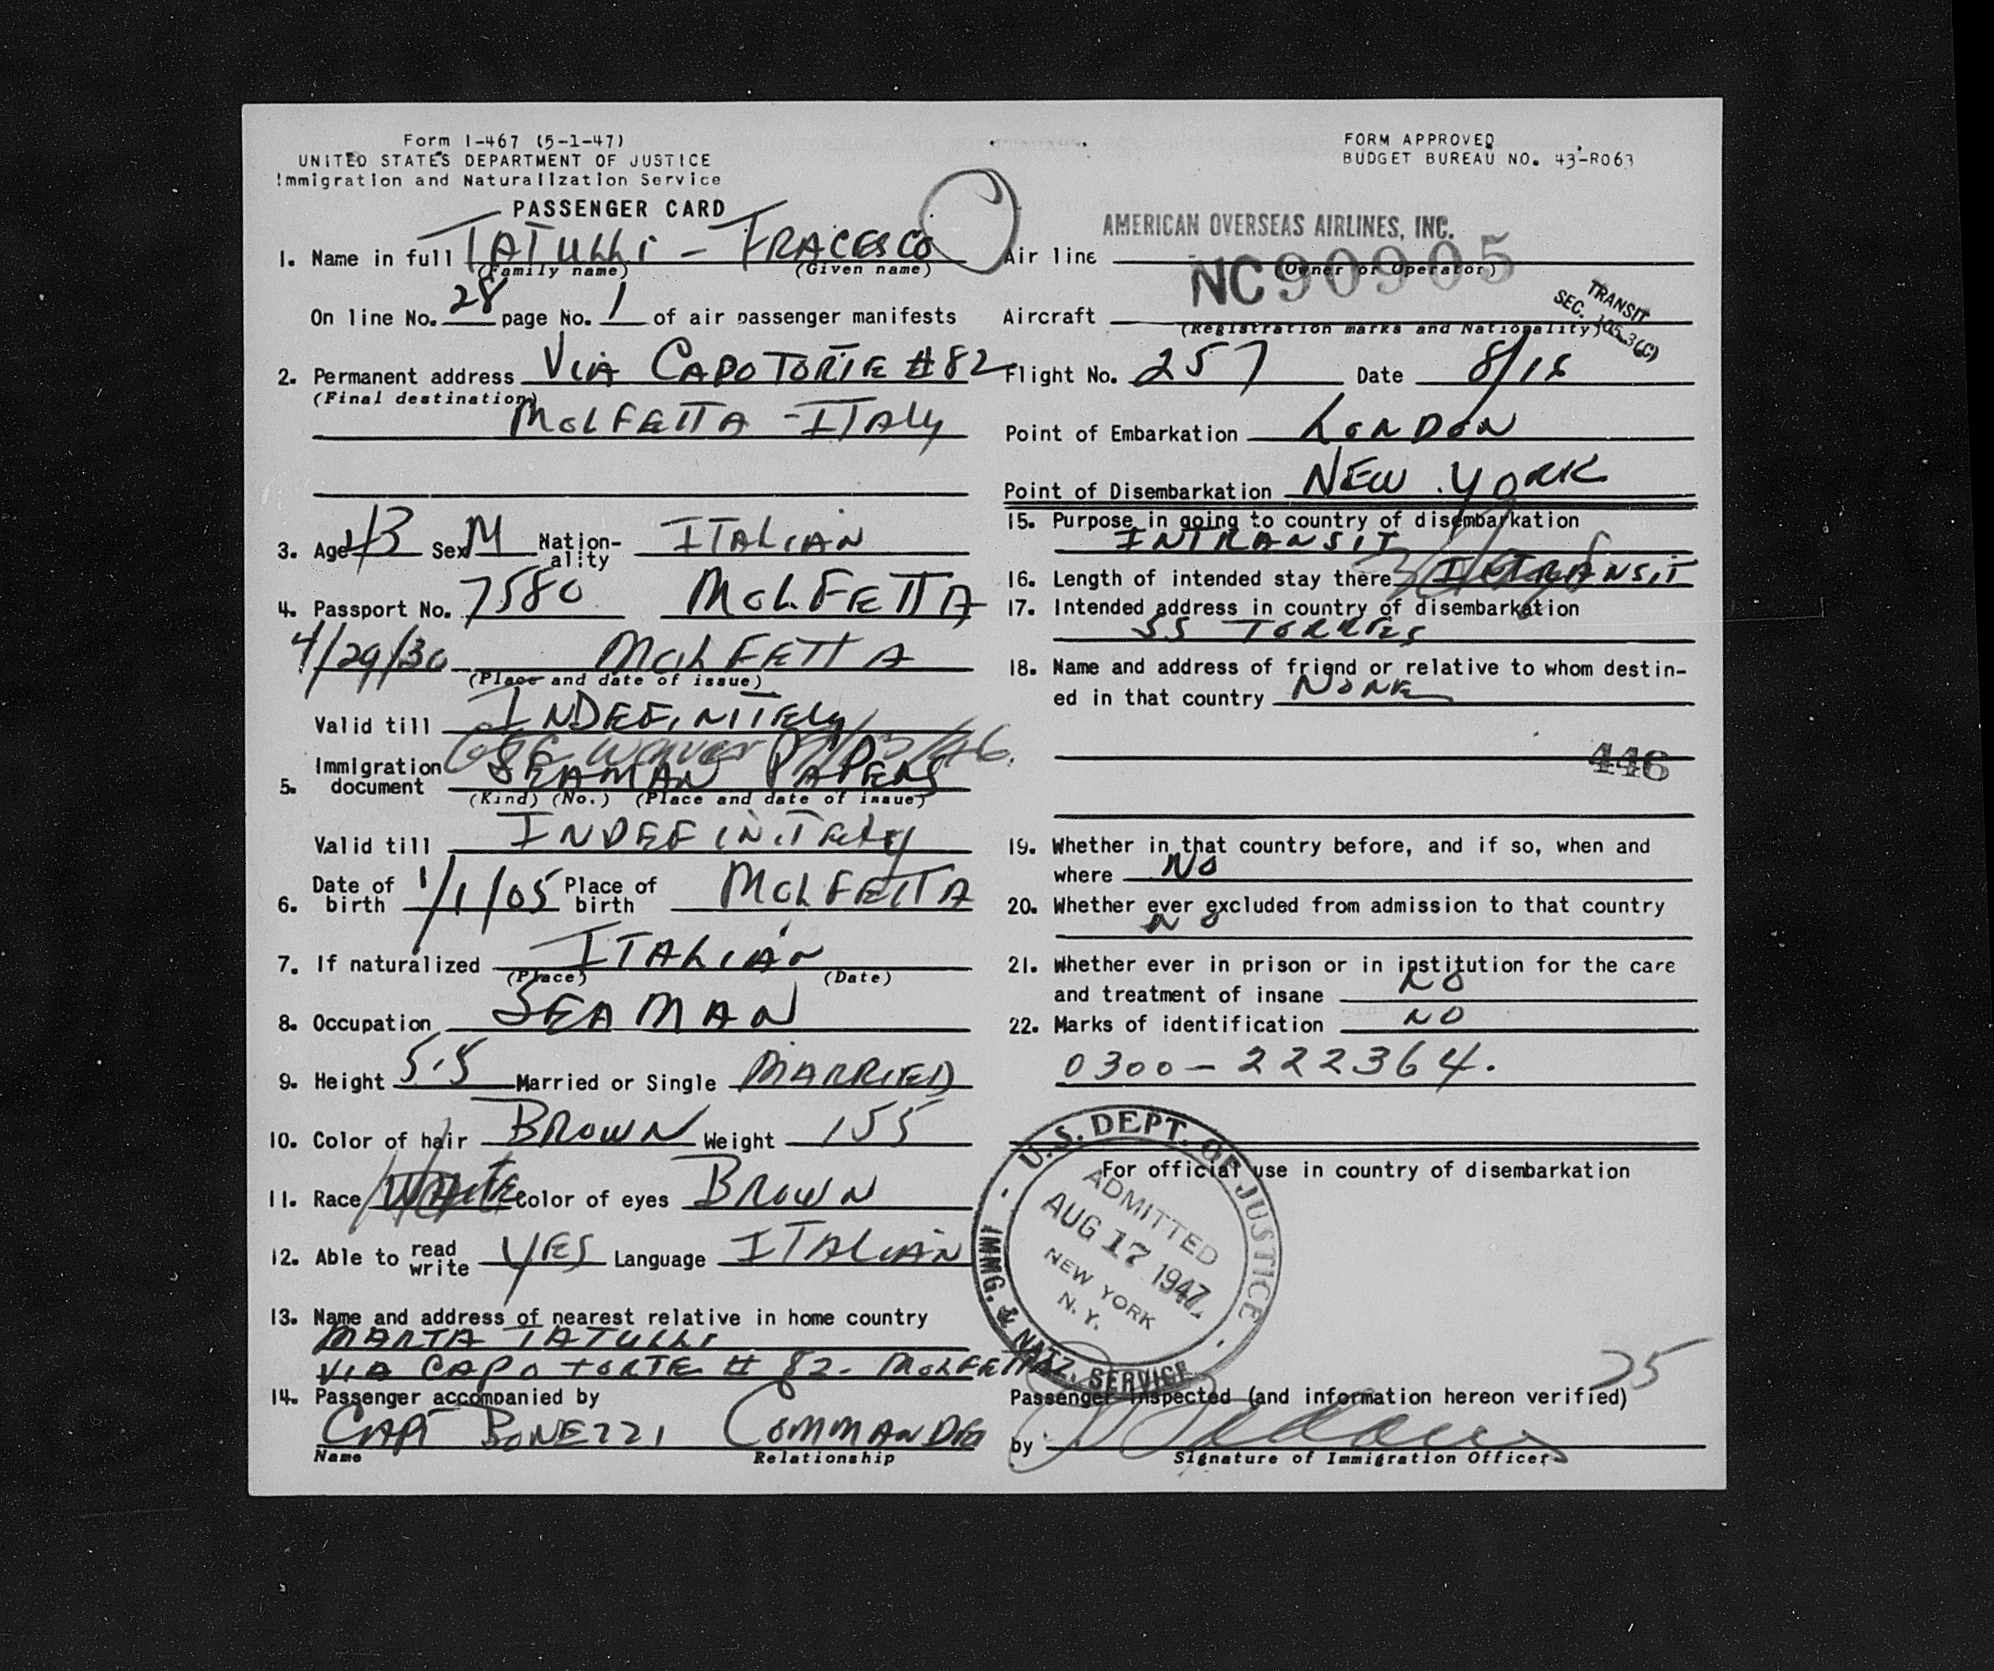 Form I-467 (5-1-47)
UNITED STATES DEPARTMENT OF JUSTICE
Immigration and Naturalization Service
PASSENGER CARD
FORM APPROVED
BUDGET BUREAU NO. 43-R063
1. Name in full TATULLI - FRACESCO
(Family name) (Given name)
On line No. 28 page No. 1 of air passenger manifests
2. Permanent address VIA CAPO TORTE #82
(Final destination)
MOLFETTA - ITALY
3. Age 43 Sex M Nation-ality ITALIAN
4. Passport No. 7580 MOLFETTA
4/29/30 MOLFETTA
(Place and date of issue)
Valid till INDEFINITELY
5. Immigration document SEAMAN PAPERS
(Kind) (No.) (Place and date of issue)
Valid till INDEFINITELY
6. Date of birth 1/1/05 Place of birth MOLFETTA
7. If naturalized ITALIAN
(Place) (Date)
8. Occupation SEAMAN
9. Height 5.5 Married or Single MARRIED
10. Color of hair BROWN Weight 155
11. Race WHITE Color of eyes BROWN
12. Able to read write YES Language ITALIAN
13. Name and address of nearest relative in home country
MARTA TATULLI
VIA CAPO TORTE # 82 - MOLFETTA
14. Passenger accompanied by
CAPT BONEZZI COMMANDER
Name Relationship
AMERICAN OVERSEAS AIRLINES, INC.
Air line
(Owner or Operator)
NC 90905
Aircraft
(Registration marks and Nationality)
TRANSIT
SEC. 105.3(C)
Flight No. 257 Date 8/16
Point of Embarkation LONDON
Point of Disembarkation NEW YORK
15. Purpose in going to country of disembarkation
INTRANSIT
16. Length of intended stay there INTRANSIT
17. Intended address in country of disembarkation
SS TORRES
18. Name and address of friend or relative to whom destin-
ed in that country NONE
446
19. Whether in that country before, and if so, when and
where NO
20. Whether ever excluded from admission to that country
NO
21. Whether ever in prison or in institution for the care
and treatment of insane NO
22. Marks of identification NO
0300-222364.
For official use in country of disembarkation
U.S. DEPT. OF JUSTICE
ADMITTED
AUG 17 1947
NEW YORK
N.Y.
IMMG. & NATZ. SERVICE
25
Passenger inspected (and information hereon verified)
by
Signature of Immigration Officer